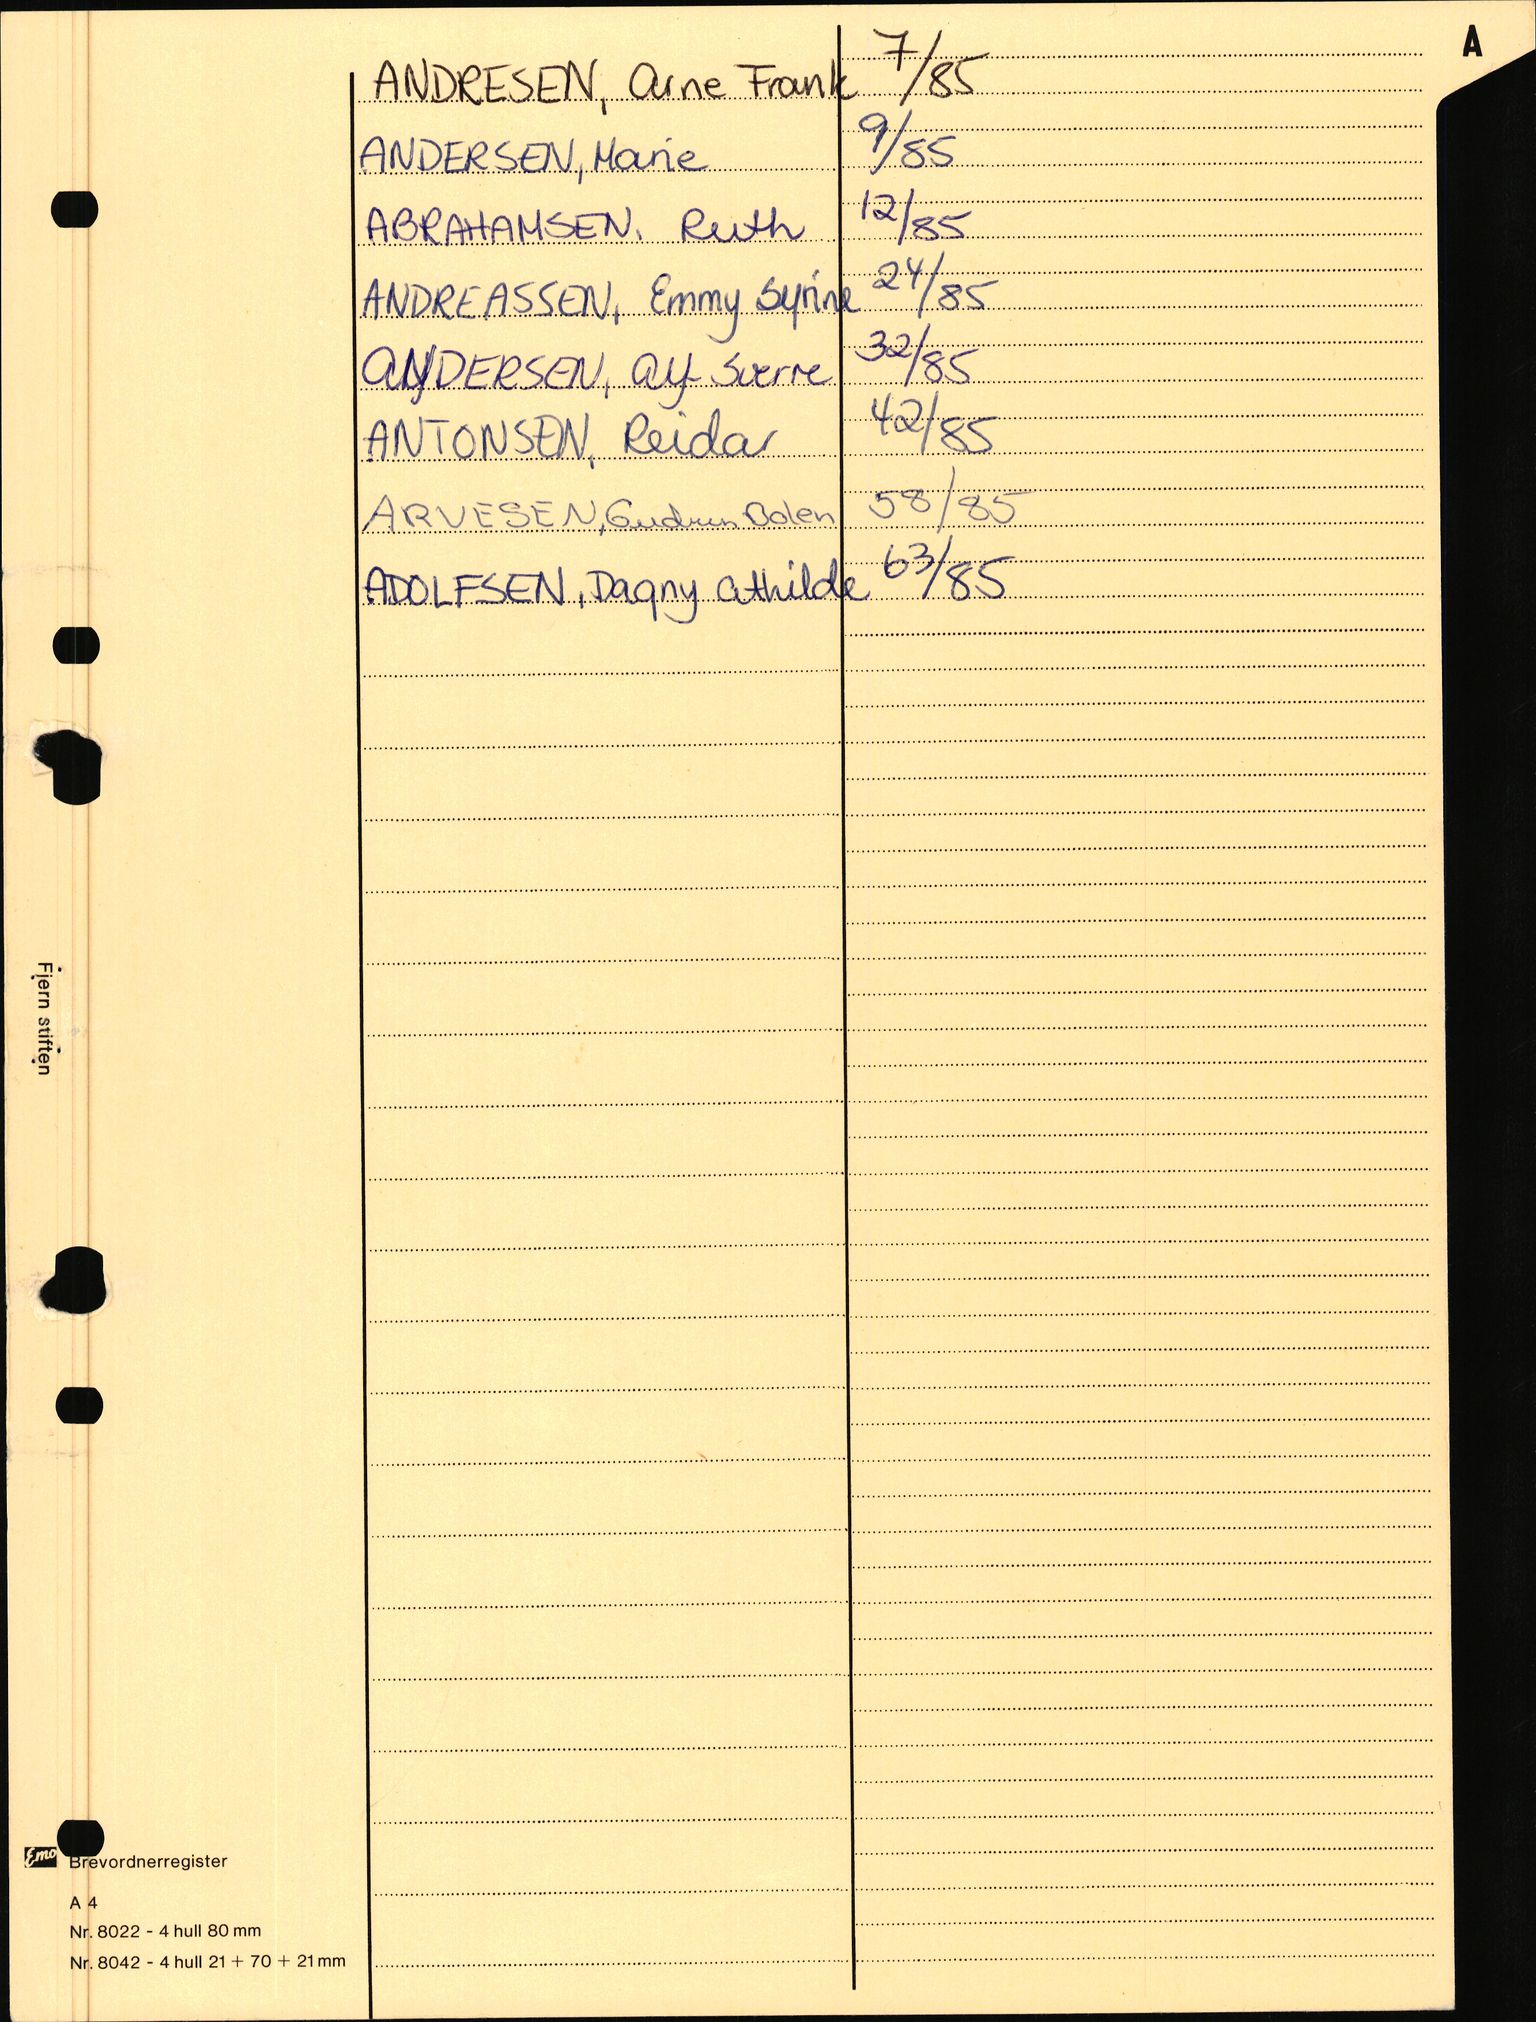 A
ANDRESEN, Arne Frank 7/85
ANDERSEN, Marie 9/85
ABRAHAMSEN. Ruth 12/85
ANDREASSEN, Emmy Syrine 24/85
ANDERSEN, Alf Sverre 32/85
ANTONSEN, Reidar 42/85
ARVESEN, Gudrun Bolen 58/85
ADOLFSEN, Dagny Athilde 63/85
Fjern stiften
Emo Brevordnerregister
A 4
Nr. 8022 - 4 hull 80 mm
Nr. 8042 - 4 hull 21 + 70 + 21 mm